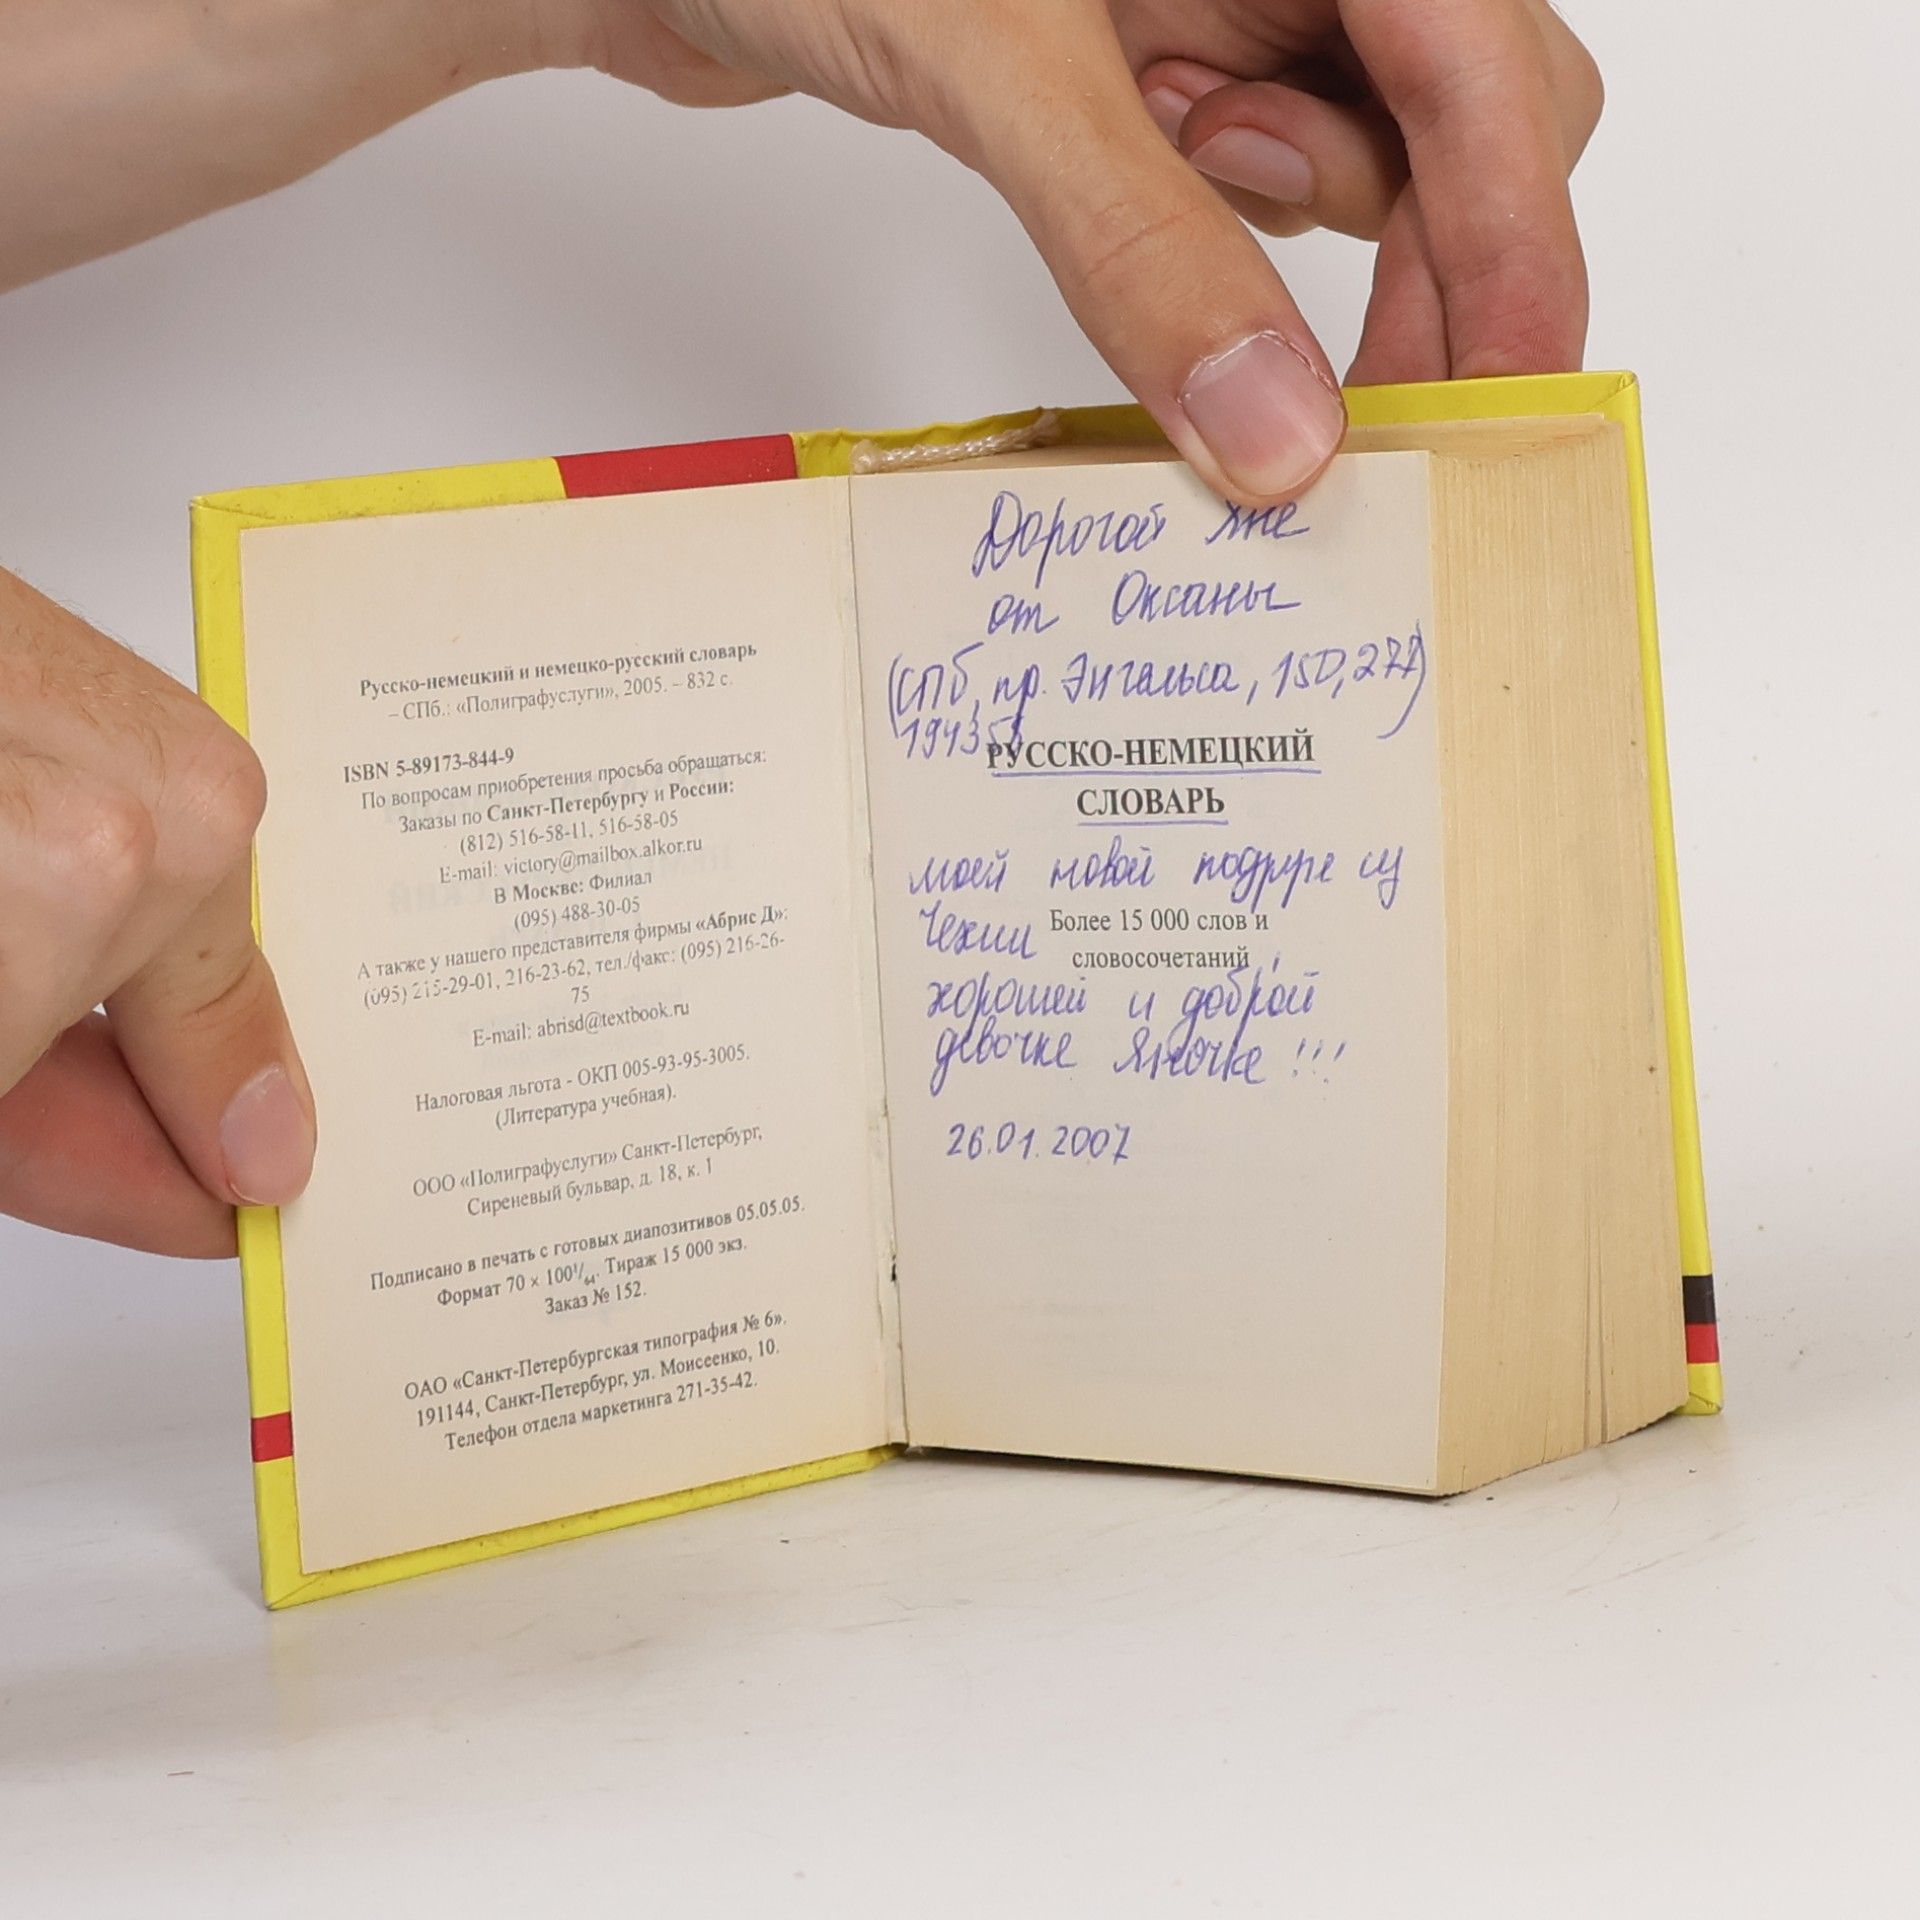 Русско-немецкий и немецко-русский словарь
– СПб.: «Полиграфуслуги», 2005. – 832 с.
ISBN 5-89173-844-9
По вопросам приобретения просьба обращаться:
Заказы по Санкт-Петербургу и России:
(812) 516-58-11, 516-58-05
E-mail: victory@mailbox.alkor.ru
В Москве: Филиал
(095) 488-30-05
А также у нашего представителя фирмы «Абрис Д»:
(095) 215-29-01, 216-23-62, тел./факс: (095) 216-26-
75
E-mail: abrisd@textbook.ru
Налоговая льгота - ОКП 005-93-95-3005.
(Литература учебная).
ООО «Полиграфуслуги» Санкт-Петербург,
Сиреневый бульвар, д. 18, к. 1
Подписано в печать с готовых диапозитивов 05.05.05.
Формат 70 × 100¹/₆₄. Тираж 15 000 экз.
Заказ № 152.
ОАО «Санкт-Петербургская типография № 6».
191144, Санкт-Петербург, ул. Моисеенко, 10.
Телефон отдела маркетинга 271-35-42.
Дорогой Яне
от Оксаны
(СПб, пр. Энгельса, 150, 277)
РУССКО-НЕМЕЦКИЙ
СЛОВАРЬ
моей новой подруге из
Чехии
Более 15 000 слов и
словосочетаний
хорошей и доброй
девочке Яночке !!!
26.01.2007